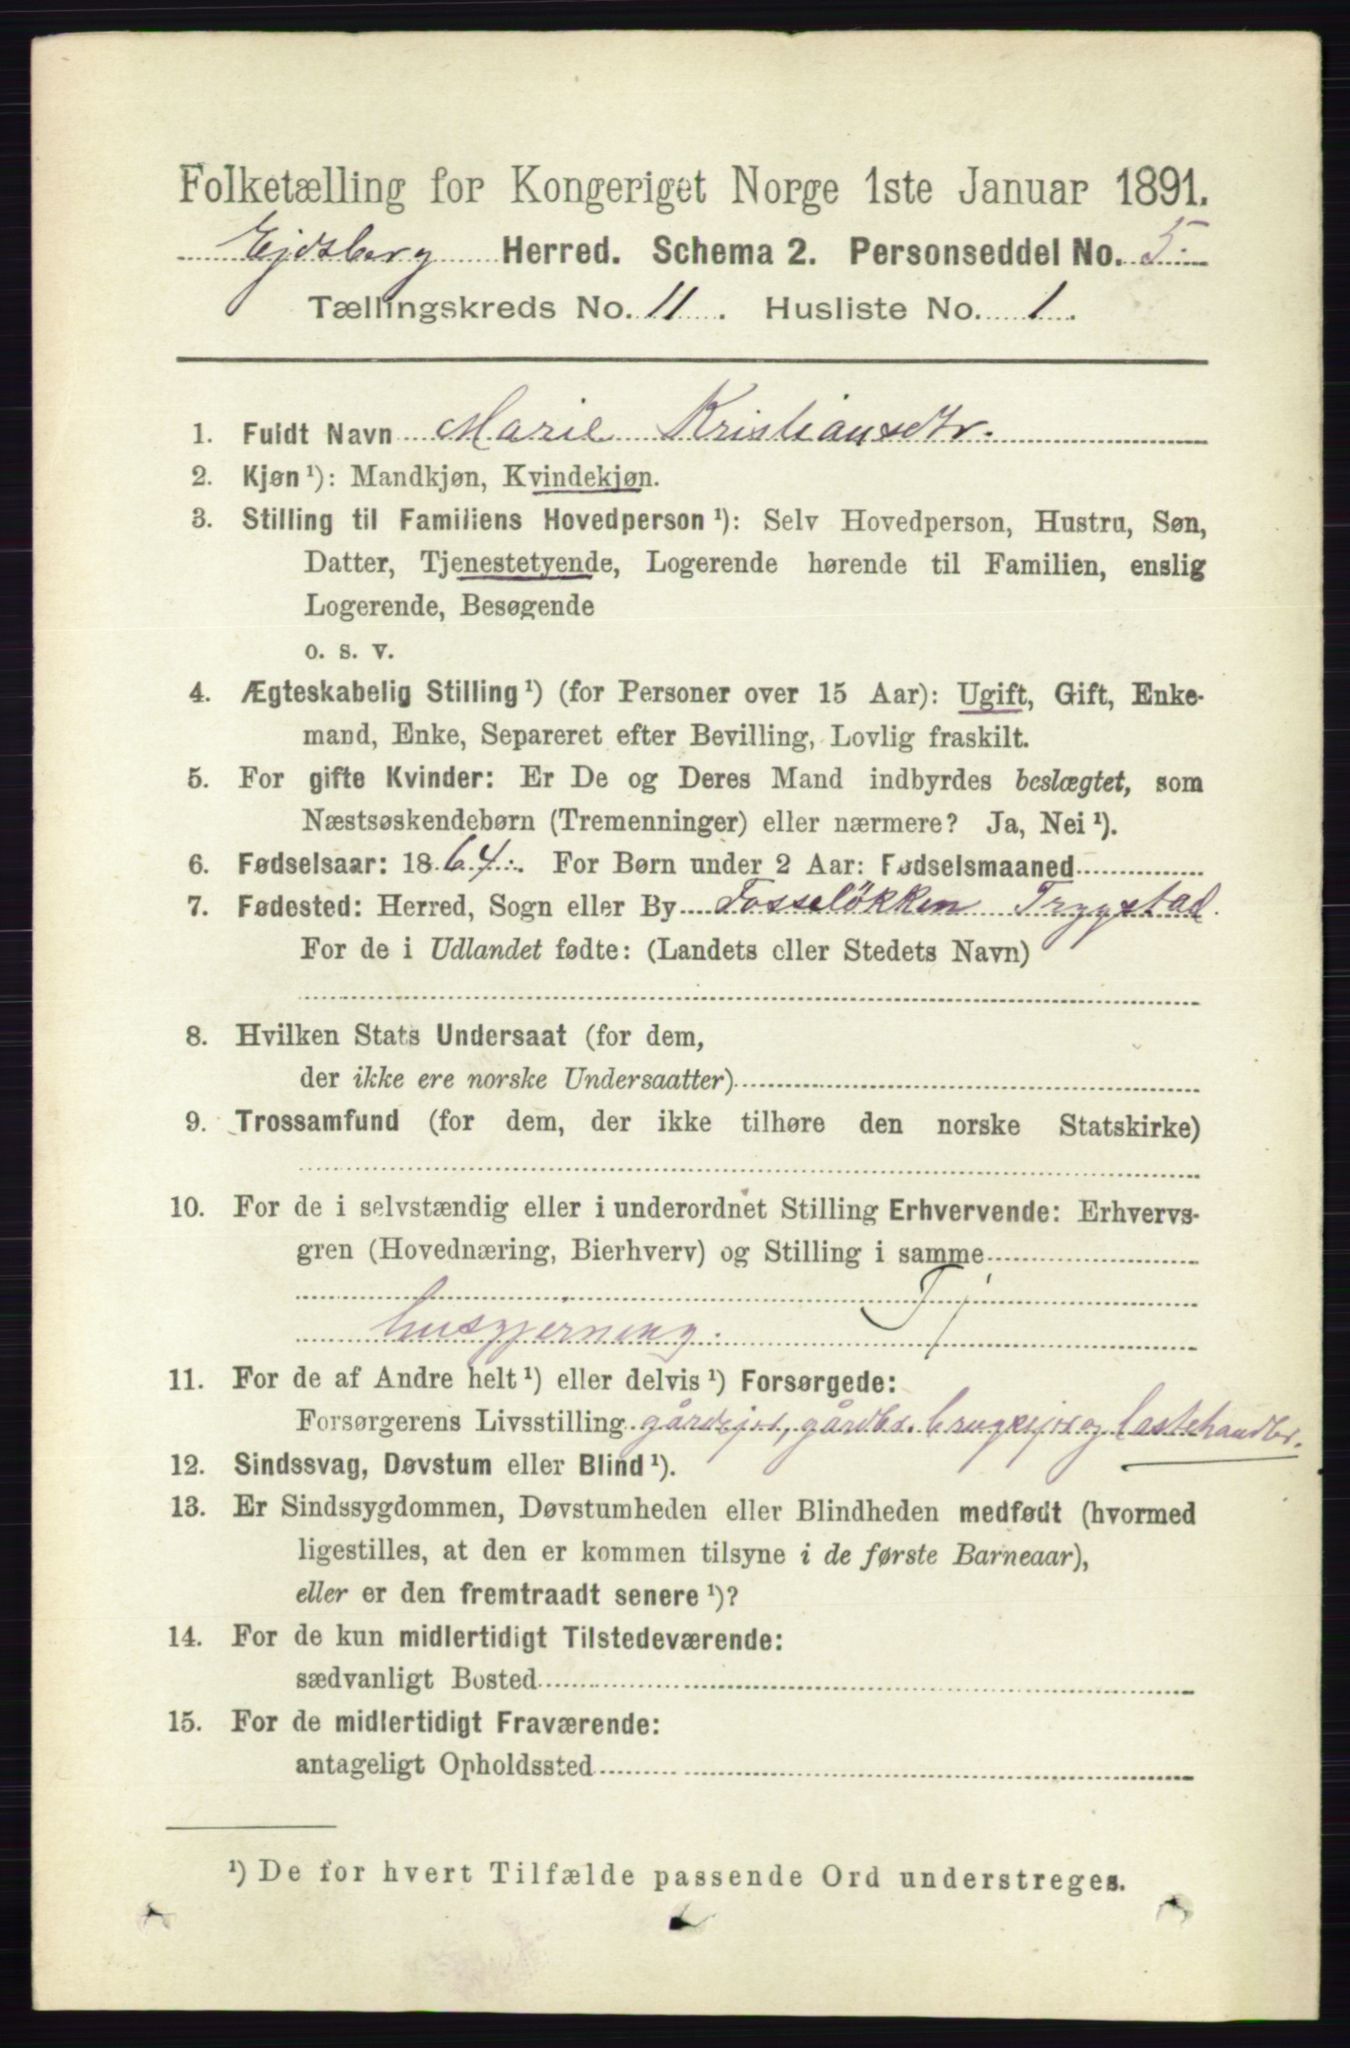 Folketælling for Kongeriget Norge 1ste Januar 1891.
Ejdsberg Herred. Schema 2. Personseddel No. 5.
Tællingskreds No. 11. Husliste No. 1.
1. Fuldt Navn Marie Kristiansdtr.
2. Kjøn ¹): Mandkjøn, Kvindekjøn.
3. Stilling til Familiens Hovedperson ¹): Selv Hovedperson, Hustru, Søn,
Datter, Tjenestetyende, Logerende hørende til Familien, enslig
Logerende, Besøgende
o. s. v.
4. Ægteskabelig Stilling ¹) (for Personer over 15 Aar): Ugift, Gift, Enke-
mand, Enke, Separeret efter Bevilling, Lovlig fraskilt.
5. For gifte Kvinder: Er De og Deres Mand indbyrdes beslægtet, som
Næstsøskendebørn (Tremenninger) eller nærmere? Ja, Nei ¹).
6. Fødselsaar: 1864. For Børn under 2 Aar: Fødselsmaaned
7. Fødested: Herred, Sogn eller By Fosseløkken Trygstad.
For de i Udlandet fødte: (Landets eller Stedets Navn)
8. Hvilken Stats Undersaat (for dem,
der ikke ere norske Undersaatter)
9. Trossamfund (for dem, der ikke tilhøre den norske Statskirke)
10. For de i selvstændig eller i underordnet Stilling Erhvervende: Erhvervs-
gren (Hovednæring, Bierhverv) og Stilling i samme
Tj
husgjerning.
11. For de af Andre helt ¹) eller delvis ¹) Forsørgede:
Forsørgerens Livsstilling gårdejer, gårdbr. brugsejer og lastehandler.
12. Sindssvag, Døvstum eller Blind ¹).
13. Er Sindssygdommen, Døvstumheden eller Blindheden medfødt (hvormed
ligestilles, at den er kommen tilsyne i de første Barneaar),
eller er den fremtraadt senere ¹)?
14. For de kun midlertidigt Tilstedeværende:
sædvanligt Bosted
15. For de midlertidigt Fraværende:
antageligt Opholdssted
¹) De for hvert Tilfælde passende Ord understreges.